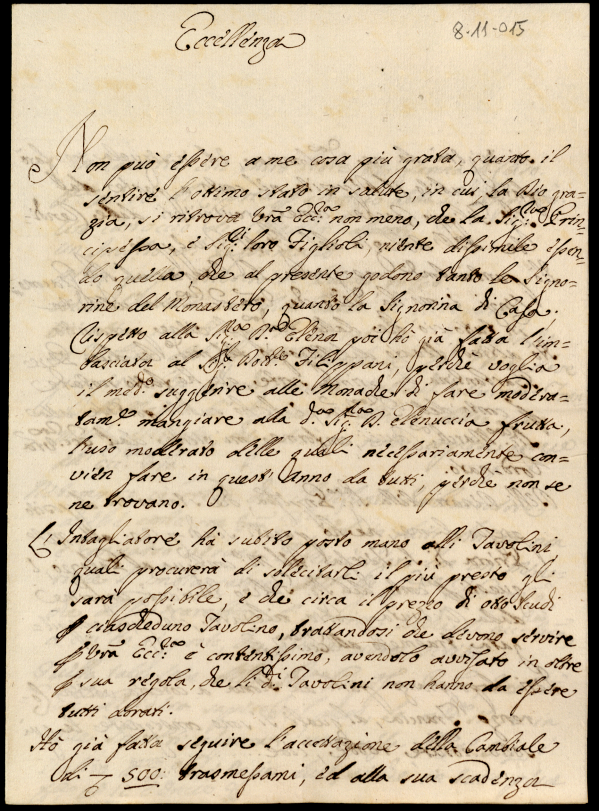 8-11-015
Eccellenza
Non può essere a me cosa più grata, quanto il
sentire l'ottimo stato in salute, in cui la Dio gra=
zia, si ritrova Vrã Ecc.ª non meno, che la Sig.ra Prin=
cipessa, e Sig.ri loro Figlioli, niente dissimile essen=
do quella, che al presente godono tanto le Signo=
rine del Monastero, quanto la Signorina di Casa;
Rispetto alla Sig.ra D. Elena poi hò già fatta l'im=
basciata al Sig.r Dott.re Filippani, perche voglia
il med.º suggerire alle Monache di fare modera=
tam.e mangiare alla d.ª Sig.ra D. Elenuccia frutta,
l'uso moderato delle quali necessariamente con=
vien fare in quest'anno da tutti, perche non se
ne trovano.
L'Intagliatore ha subito posto mano alli Tavolini
quali procurerà di sollecitarli il più presto gli
sarà possibile, e che circa il prezzo di otto scudi
p ciascheduno Tavolino, trattandosi che devono servire
p Vrã Ecc.ª è contentissimo, avendolo avvisato in oltre
p sua regola, che li d.i Tavolini non hanno da essere
tutti dorati.
Hò già fatta seguire l'accettazione della Cambiale
di 500: trasmessami, ed alla sua scadenza